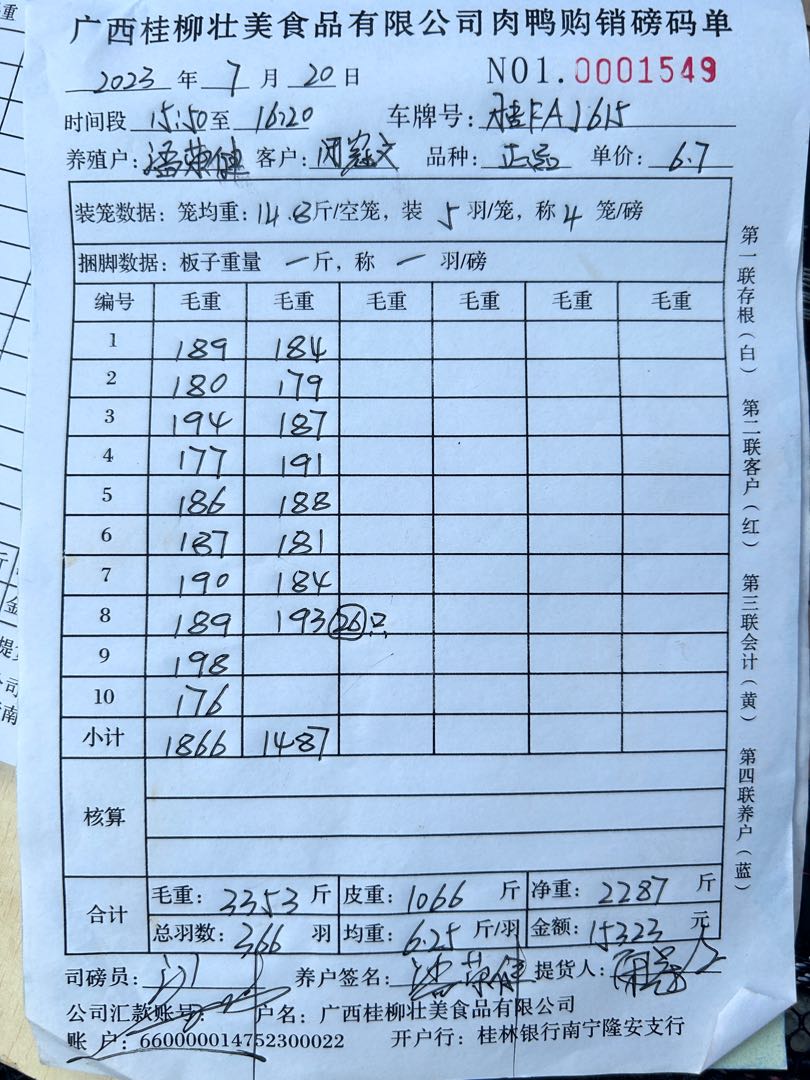 广西桂柳壮美食品有限公司肉鸭购销磅码单
2023 年 7 月 20 日 NO1.0001549
时间段 15:50 至 16:20 车牌号: 桂FAJ615
养殖户: 潘荣健 客户: 品种: 正品 单价: 6.7
装笼数据: 笼均重: 14.8 斤/空笼, 装 5 羽/笼, 称 4 笼/磅
捆脚数据: 板子重量 一 斤, 称 一 羽/磅
编号 毛重 毛重 毛重 毛重 毛重 毛重
1 189 184
2 180 179
3 194 187
4 177 191
5 186 188
6 187 181
7 190 184
8 189 193 26只
9 198
10 176
小计 1866 1487
核算
合计 毛重: 3353 斤 皮重: 1066 斤 净重: 2287 斤
总羽数: 366 羽 均重: 6.25 斤/羽 金额: 15323 元
司磅员: 养户签名: 潘荣健 提货人:
公司汇款账号: 户名: 广西桂柳壮美食品有限公司
账 户: 660000014752300022 开户行: 桂林银行南宁隆安支行
第一联存根(白) 第二联客户(红) 第三联会计(黄) 第四联养户(蓝)